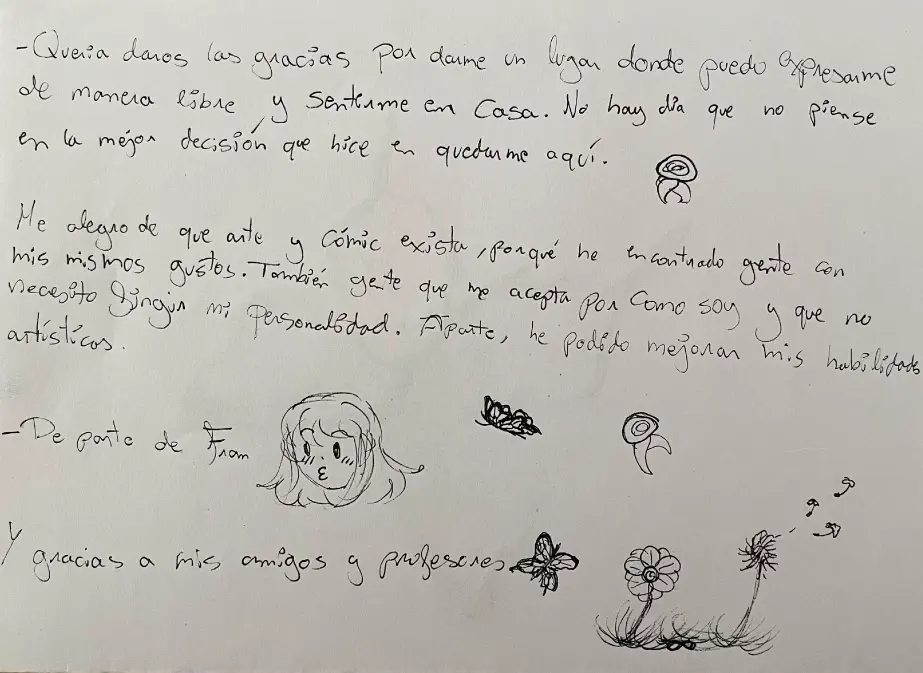 -Queria daros las gracias por darme un lugar donde puedo expresarme
de manera libre y sentirme en casa. No hay día que no piense
en la mejor decisión que hice en quedarme aquí.
Me alegro de que arte y cómic exista, porqué he encontrado gente con
mis mismos gustos. También gente que me acepta por como soy y que no
necesito fingir mi personalidad. Aparte, he podido mejorar mis habilidades
artísticas.
-De parte de Fran
Y gracias a mis amigos y profesores